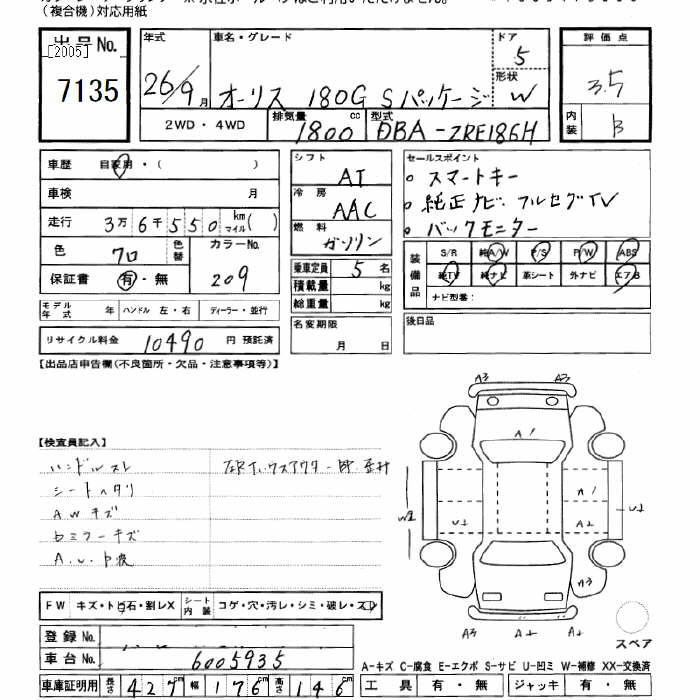 （複合機）対応用紙
出品No.
[2005]
7135
年式
26/9月
車名・グレード
オーリス 180G Sパッケージ
ドア
5
形状
W
評価点
3.5
内装
B
2WD・4WD
排気量
1800 cc
型式
DBA-ZRE186H
車歴 自家用・( )
車検 月
走行 3万6千550 km マイル( )
色 クロ 色替
カラーNo. 209
保証書 有・無
シフト AT
冷房 AAC
燃料 ガソリン
乗車定員 5名
積載量 kg
総重量 kg
名変期限
月 日
セールスポイント
スマートキー
純正ナビ フルセグTV
バックモニター
装備品
S/R 純A/W P/S P/W ABS
純TV 純ナビ 革シート 外ナビ エアB
ナビ型番：
後日品
モデル年式 年 ハンドル 左・右 ディーラー・並行
リサイクル料金 10490 円 預託済
【出品店申告欄(不良箇所・欠品・注意事項等)】
【検査員記入】
ハンドルスレ
シートヘタリ
AWキズ
A3 A3
A1
A1
W2 U2 A2 U1
A3
A2 A2
スペア
FW キズ・トビ石・割レX シート内装 コゲ・穴・汚レ・シミ・破レ・スレ
登録No.
車台No. 6005935
A-キズ C-腐食 E-エクボ S-サビ U-凹ミ W-補修 XX-交換済
車庫証明用 長さ 427cm 幅 176cm 高さ 146cm
工具 有・無 ジャッキ 有・無